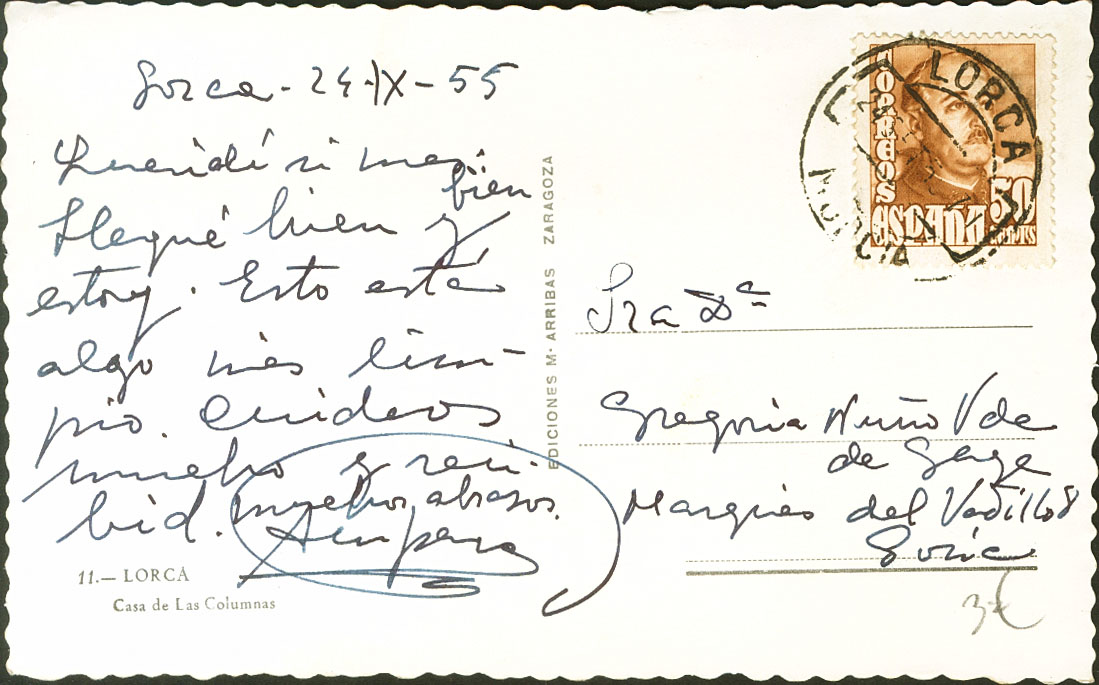 Lorca - 24-IX-55
Queridísima:
Llegué bien y bien
estoy. Esto está
algo más lim-
pio. Cuidaos
mucho y reci-
bid. muchos abrazos.
Amparo
11.— LORCA
Casa de Las Columnas
EDICIONES M. ARRIBAS ZARAGOZA
CORREOS
ESPAÑA 50
LORCA
MURCIA
Sra Dª
Gregoria Nuño Vda
de
Marqués del Vadillo 8
Soria
3€